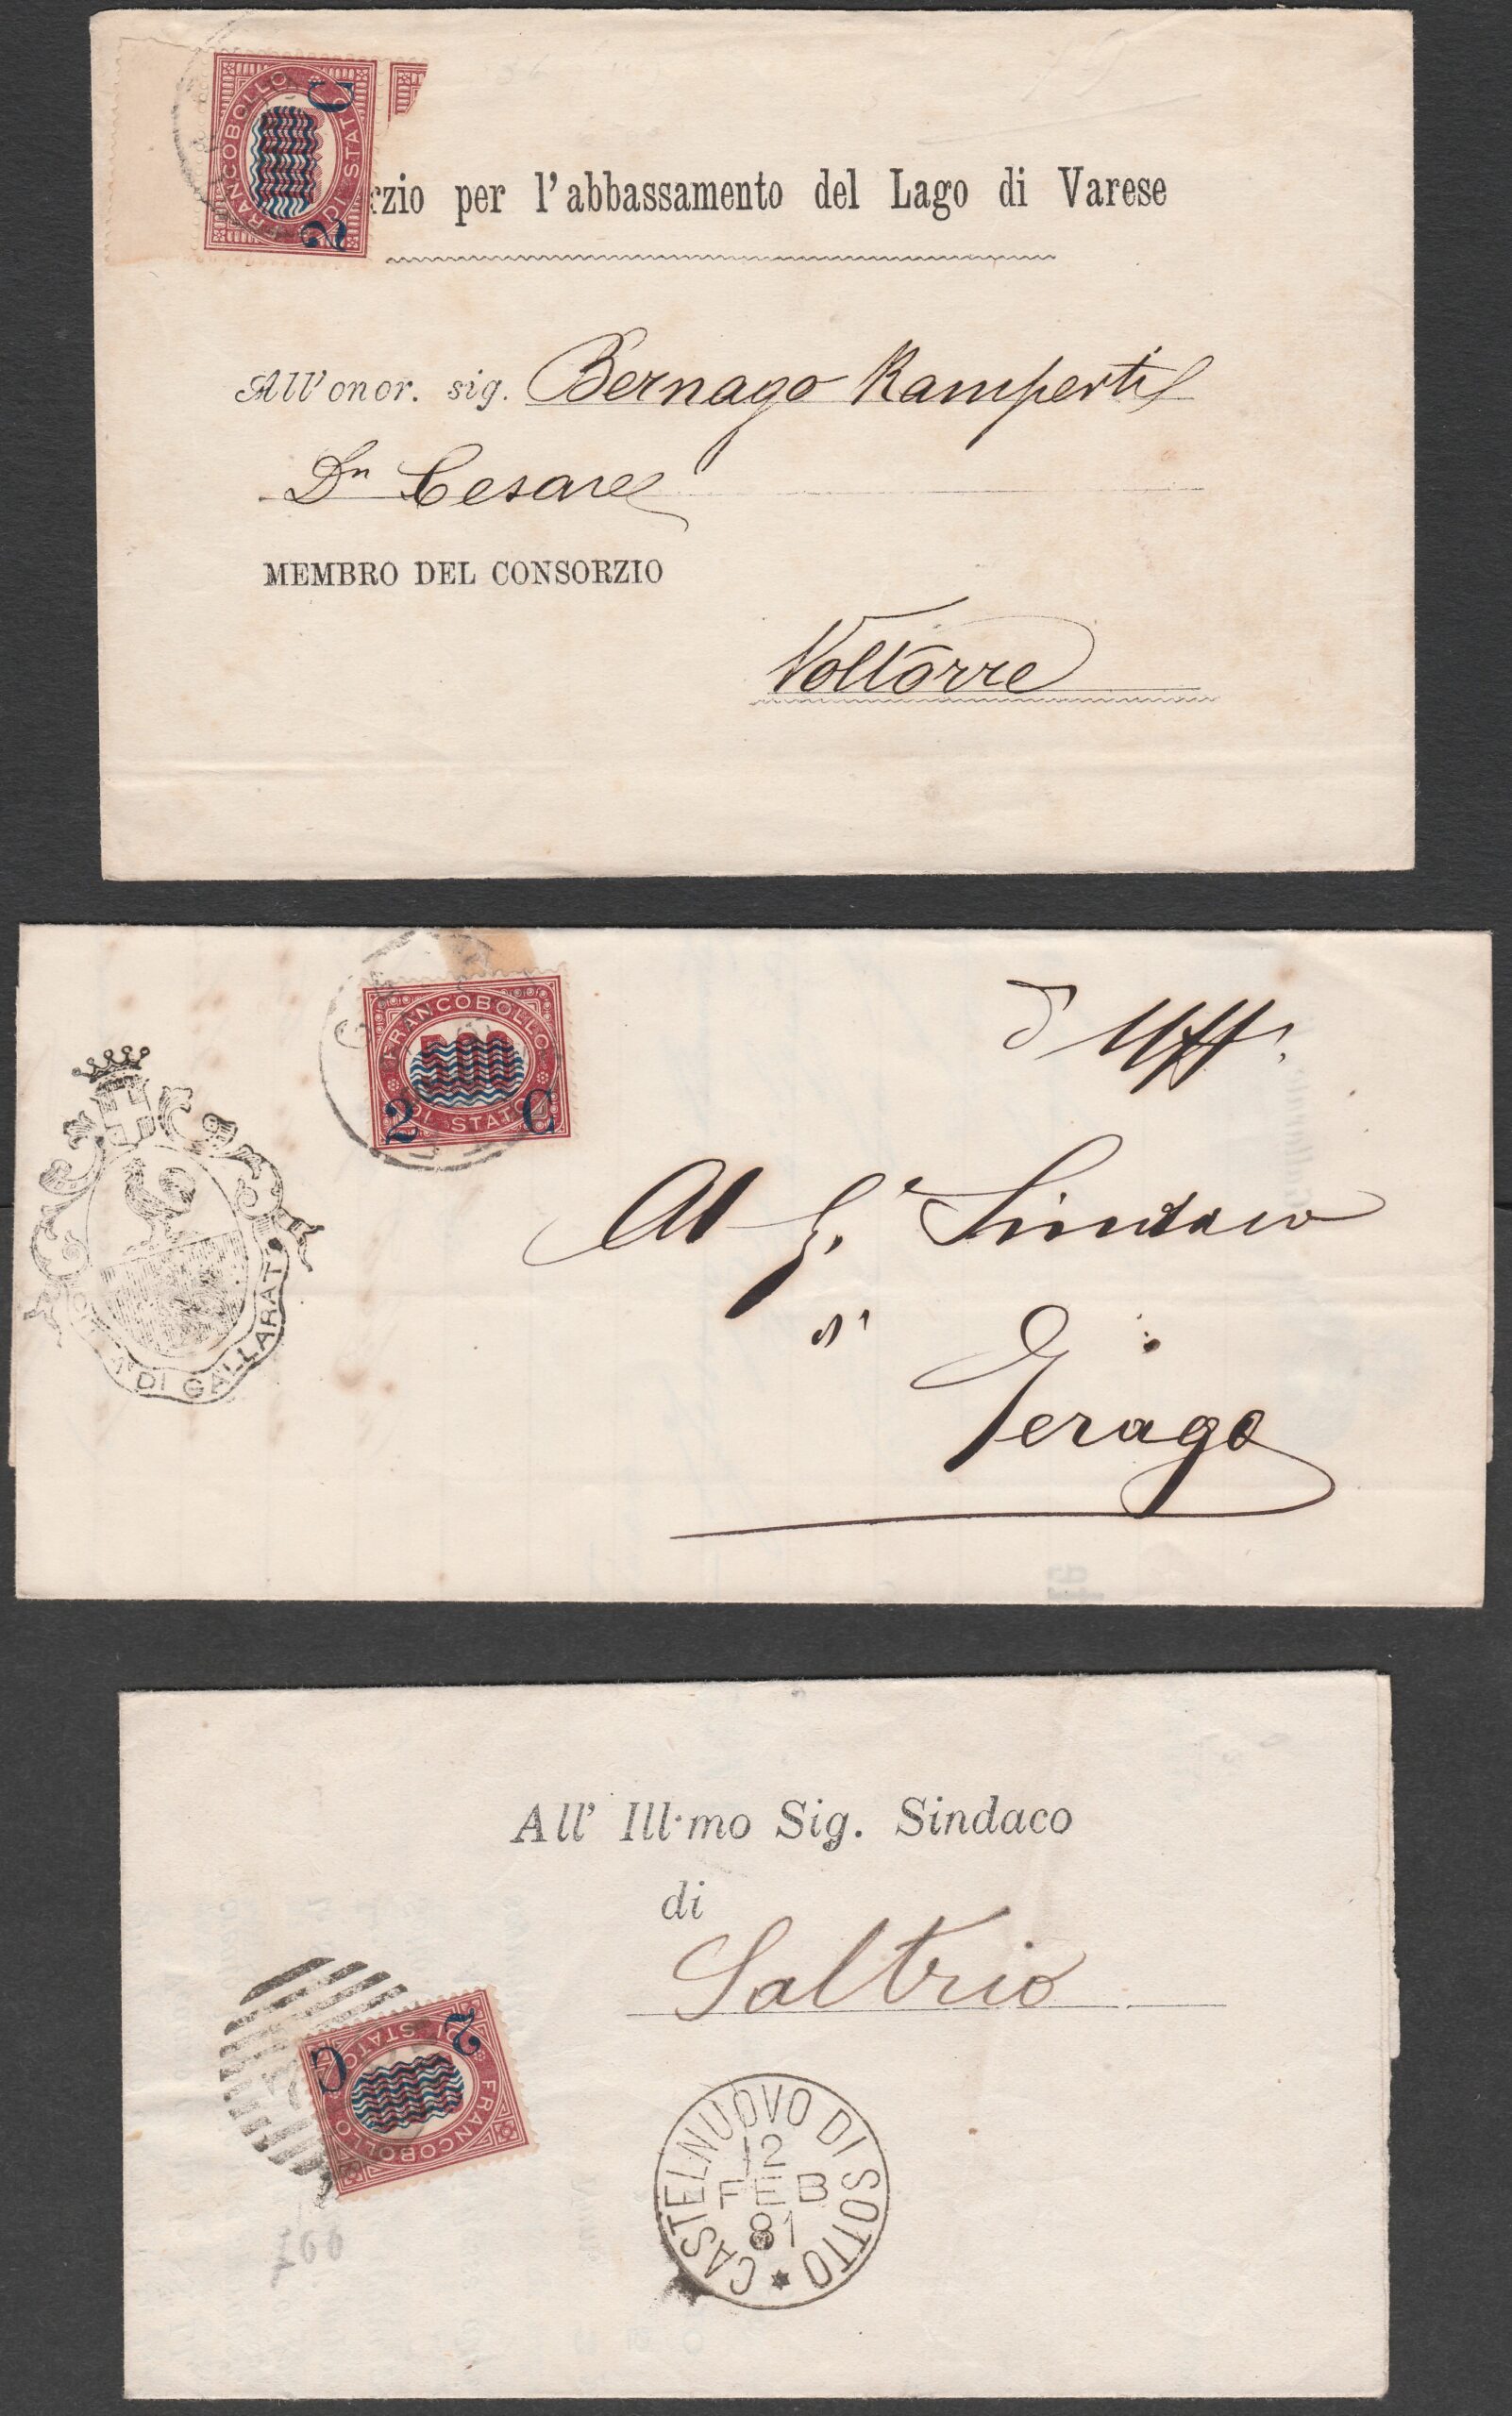 FRANCOBOLLO
DI STATO
2 C
rzio per l'abbassamento del Lago di Varese
All'onor. sig. Bernago Ramperti
Dn Cesare
MEMBRO DEL CONSORZIO
Voltorre
FRANCOBOLLO
DI STATO
2 C
DI GALLARAT
Uff.
Al S.r Sindaco
di
Jerago
All' Ill.mo Sig. Sindaco
di
Saltrio
FRANCOBOLLO
DI STATO
2 C
CASTELNUOVO DI SOTTO
12
FEB
81